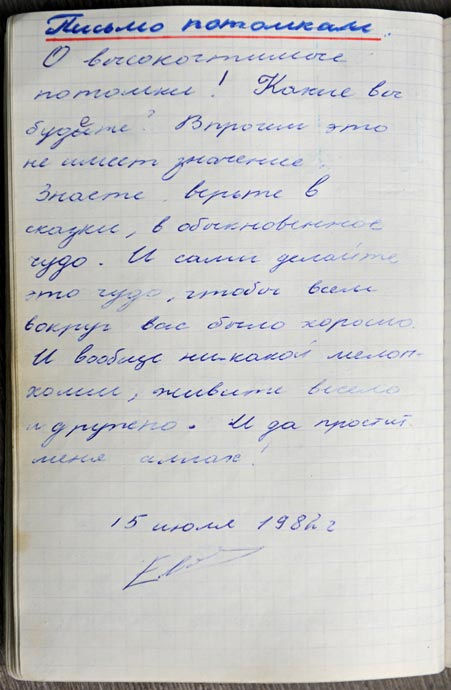 Письмо потомкам.
О высокочтимые
потомки! Какие вы
будете? Впрочем это
не имеет значение.
Знаете верьте в
сказки, в обыкновенное
чудо. И сами делайте
это чудо, чтобы всем
вокруг вас было хорошо.
И вообще ни-какой мелан-
холии, живите весело
и дружно. И да простит
меня аллах!
15 июля 1982 г